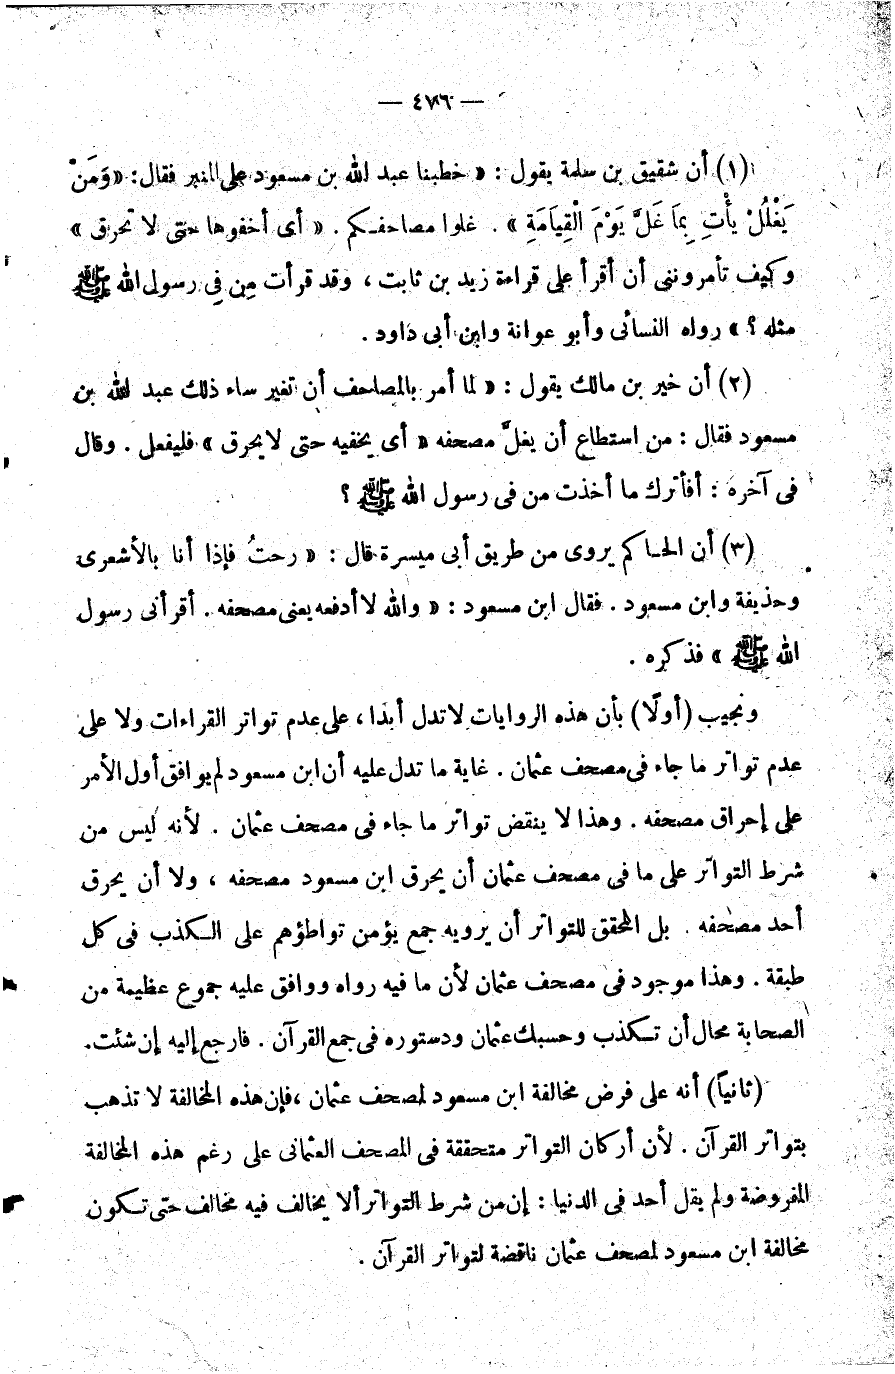 — ٤٧٦ —
(١) أن شقيق بن سلمة يقول : « خطبنا عبد الله بن مسعود على المنبر فقال: «وَمَنْ
يَغْلُلْ يأْتِ بِمَا غَلَّ يَوْمَ الْقِيَامَةِ » . غلوا مصاحفكم . « أى أخفوها حتى لا تحرق »
وكيف تأمروننى أن أقرأ على قراءة زيد بن ثابت ، وقد قرأت مِن فِى رسول الله ﷺ
مثله ؟ » رواه النسائى وأبو عوانة وابن أبى داود .
(٢) أن خير بن مالك يقول : « لما أمر بالمصاحف أن تغير ساء ذلك عبد الله بن
مسعود فقال : من استطاع أن يغلَّ مصحفه « أى يخفيه حتى لا يحرق » فليفعل . وقال
فى آخره : أفأترك ما أخذت من فى رسول الله ﷺ ؟
(٣) أن الحاكم يروى من طريق أبى ميسرة قال : « رحتُ فإذا أنا بالأشعرى
وحذيفة وابن مسعود . فقال ابن مسعود : « والله لا أدفعه يعنى مصحفه . أقرأنى رسول
الله ﷺ » فذكره .
ونجيب (أولًا) بأن هذه الروايات لا تدل أبدا ، على عدم تواتر القراءات ولا على
عدم تواتر ما جاء فى مصحف عثمان . غاية ما تدل عليه أن ابن مسعود لم يوافق أول الأمر
على إحراق مصحفه . وهذا لا ينقض تواتر ما جاء فى مصحف عثمان . لأنه ليس من
شرط التواتر على ما فى مصحف عثمان أن يحرق ابن مسعود مصحفه ، ولا أن يحرق
أحد مصحفه . بل المحقق للتواتر أن يرويه جمع يؤمن تواطؤهم على الكذب فى كل
طبقة . وهذا موجود فى مصحف عثمان لأن ما فيه رواه ووافق عليه جموع عظيمة من
الصحابة محال أن تكذب وحسبك عثمان ودستوره فى جمع القرآن . فارجع إليه إن شئت.
(ثانياً) أنه على فرض مخالفة ابن مسعود لمصحف عثمان ، فإن هذه المخالفة لا تذهب
بتواتر القرآن . لأن أركان التواتر متحققة فى المصحف العثمانى على رغم هذه المخالفة
المفروضة ولم يقل أحد فى الدنيا : إن من شرط التواتر ألا يخالف فيه مخالف حتى تكون
مخالفة ابن مسعود لمصحف عثمان ناقضة لتواتر القرآن .